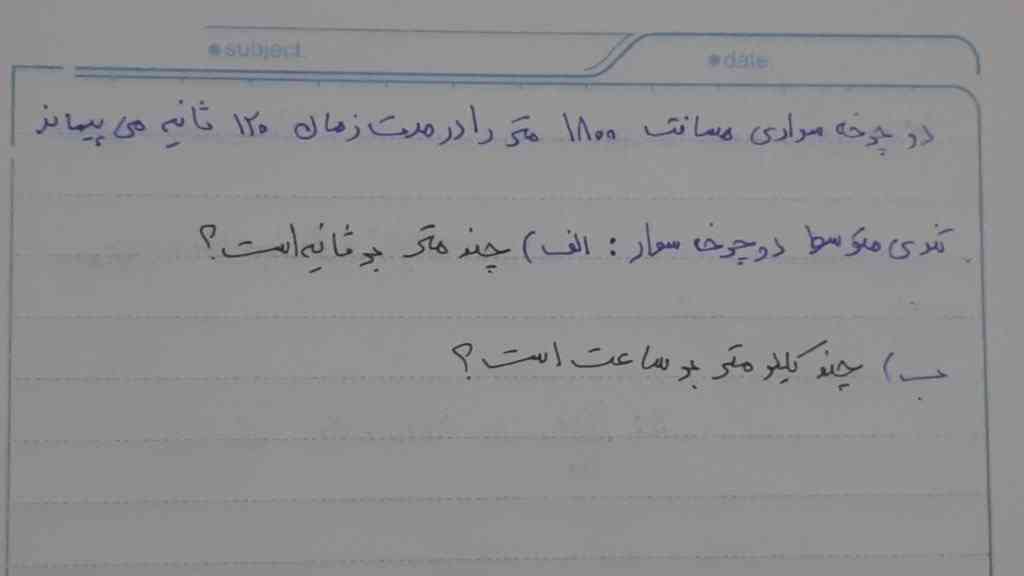 subject
date
دوچرخه سواری مسافت ۱۸۰۰ متر را در مدت زمان ۱۲۰ ثانیه می پیماند
تندی متوسط دوچرخه سوار : الف) چند متر بر ثانیه است؟
ب) چند کیلومتر بر ساعت است؟